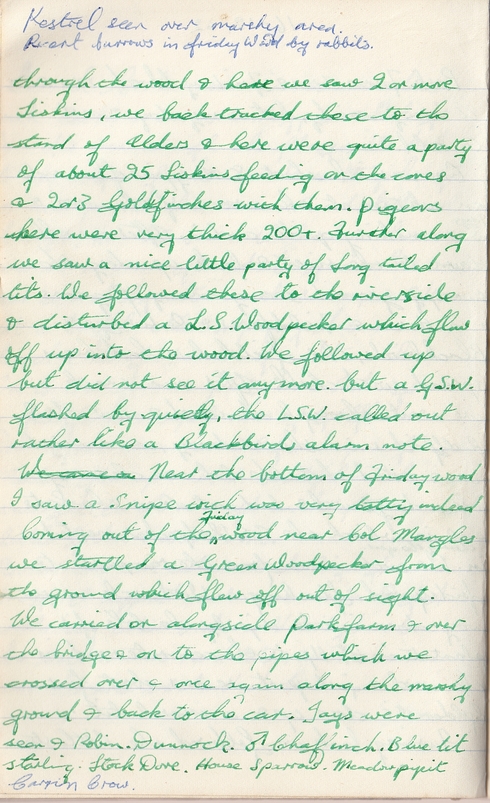 Kestrel seen over marshy area.
Recent burrows in friday Wood by rabbits.
through the wood & here we saw 2 or more
Siskins, we back tracked these to the
stand of Elders & here were quite a party
of about 25 Siskins feeding on the cones
& 2 or 3 Goldfinches with them. Pigeons
where were very thick 200+. Further along
we saw a nice little party of Long tailed
tits. We followed these to the riverside
& disturbed a L.S. Woodpecker which flew
off up into the wood. We followed up
but did not see it anymore. but a G.S.W.
flashed by quietly, the L.S.W. called out
rather like a Blackbirds alarm note.
We came a Near the bottom of Friday wood
I saw a Snipe wich was very totty indeed
Coming out of the friday wood near Col Mangles
we startled a Green Woodpecker from
the ground which flew off out of sight.
We carried on alongside Park farm & over
the bridge & on to the pipes which we
crossed over & once again along the marshy
ground & back to the car. Jays were
seen & Robin. Dunnock. ♂ Chaffinch. Blue tit
starling. Stock Dove. House Sparrow. Meadow pipit
Carrion Crow.